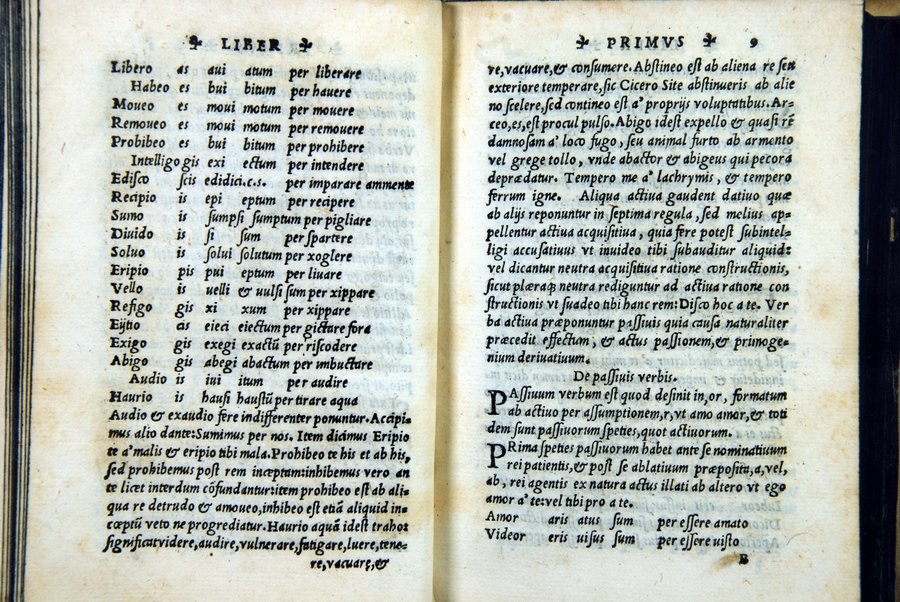 LIBER
Libero as aui atum per liberare
Habeo es bui bitum per hauere
Moueo es moui motum per mouere
Remoueo es moui motum per remouere
Probibeo es bui bitum per prohibere
Intelligo gis exi ectum per intendere
Edisco scis edidici.c.s. per imparare ammente
Recipio is epi eptum per recipere
Sumo is sumpsi sumptum per pigliare
Diuido is si sum per spartere
Soluo is solui solutum per xoglere
Eripio pis pui eptum per liuare
Vello is uelli & uulsi sum per xippare
Refigo is xi xum per xippare
Eijtio cis eieci eiectum per gictare fora
Exigo gis exegi exactū per riscodere
Abigo gis abegi abactum per imbuctare
Audio is iui itum per audire
Haurio is hausi haustū per tirare aqua
Audio & exaudio fere indifferenter ponuntur. Accipi-
mus alio dante: Sumimus per nos. Item dicimus Eripio
te a' malis & eripio tibi mala. Prohibeo te his et ab his,
sed prohibemus post rem inceptam: inhibemus vero an
te licet interdum cōfundantur: item prohibeo est ab ali-
qua re detrudo & amoueo, inhibeo est etiā aliquid in-
cœptū veto ne progrediatur. Haurio aquā idest traho:
significat videre, audire, vulnerare, fatigare, luere, tene-
re, vacuare, &
PRIMVS 9
re, vacuare, & consumere. Abstineo est ab aliena re seu
exteriore temperare, sic Cicero Si te abstinueris ab alie
no scelere, sed contineo est a' proprijs voluptatibus. Ar-
ceo, es, est procul pulso. Abigo idest expello & quasi rē
damnosam a' loco fugo, seu animal furto ab armento
vel grege tollo, vnde abactor & abigeus qui pecora
deprædatur. Tempero me a' lachrymis, & tempero
ferrum igne. Aliqua actiua gaudent datiuo quæ
ab alijs reponuntur in septima regula, sed melius ap-
pellentur actiua acquisitiua, quia fere potest subintel-
ligi accusatiuus vt inuideo tibi subauditur aliquid:
vel dicantur neutra acquisitiua ratione constructionis,
sicut plæraq; neutra rediguntur ad actiua ratione con
structionis vt suadeo tibi hanc rem: Disco hoc a te. Ver
ba actiua præponuntur passiuis quia causa naturaliter
præcedit effectum, & actus passionem, & primoge-
nium deriuatiuum.
De passiuis verbis.
PAssiuum verbum est quod definit in, or, formatum
ab actiuo per assumptionem, r, vt amo amor, & toti
dem sunt passiuorum speties, quot actiuorum.
PRima speties passiuorum habet ante se nominatiuum
rei patientis, & post se ablatiuum præposita, a, vel,
ab, rei agentis ex natura actus illati ab altero vt ego
amor a' te: vel tibi pro a te.
Amor aris atus sum per essere amato
Videor eris uisus sum per essere uisto
B